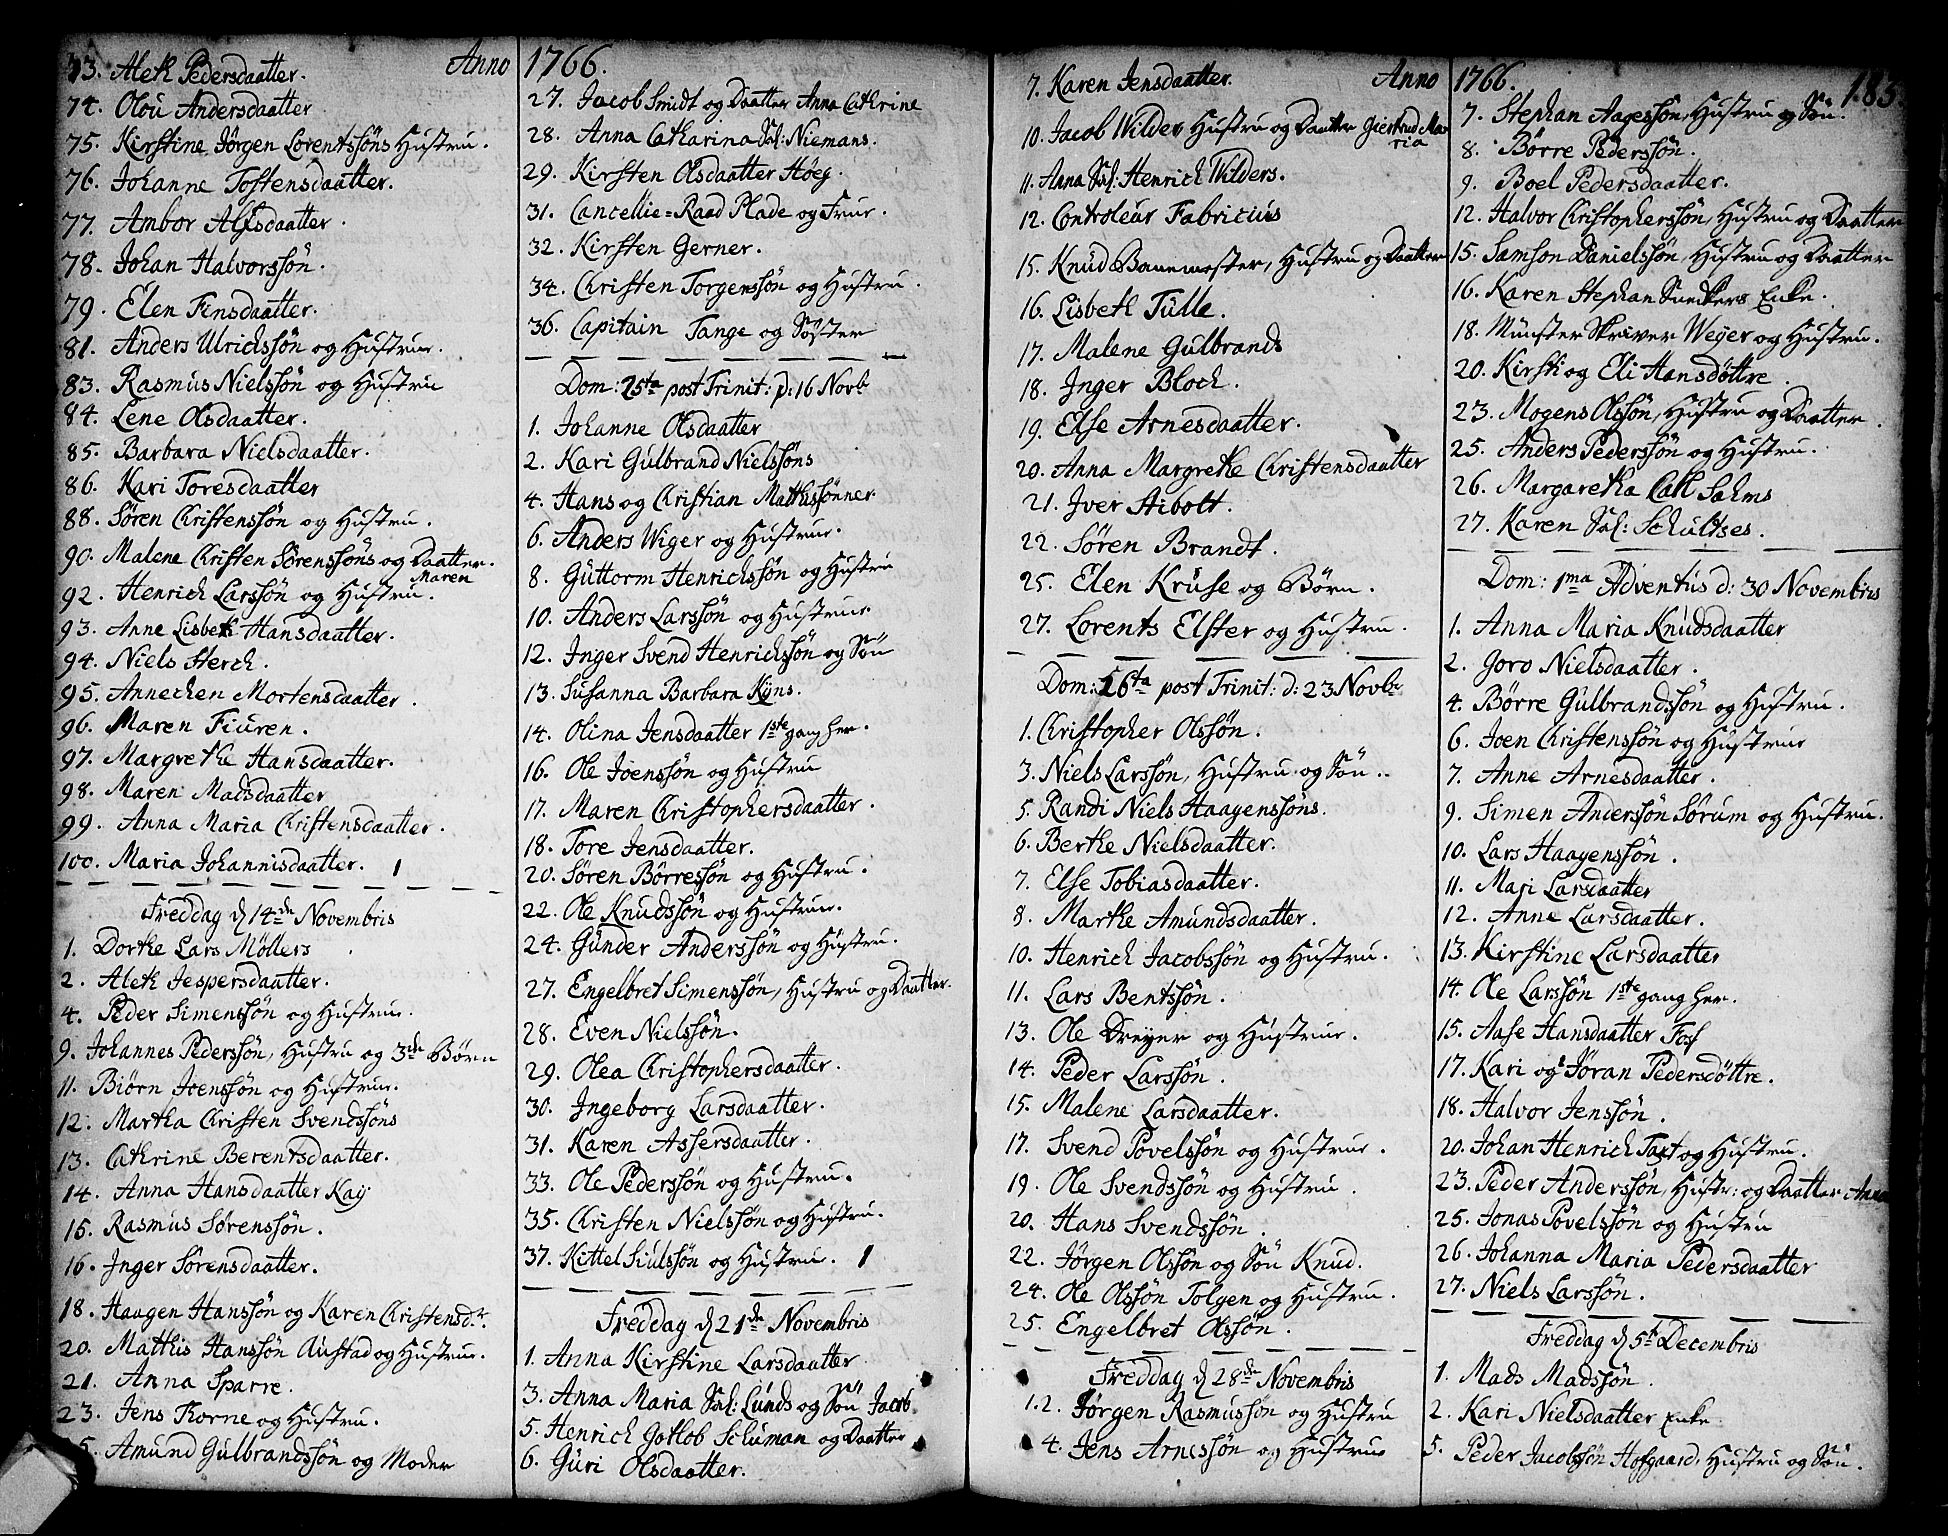 Anno 1766.
73. Aleth Pedersdaatter.
74. Olou Andersdaatter
75. Kirstine Jørgen Lorentssøns Hustru.
76. Johanne Tostensdaatter.
77. Ambor Alfsdaatter.
78. Johan Halvorssøn.
79. Elen Finsdaatter.
81. Anders Ulrichssøn og Hustrue.
83. Rasmus Nielssøn og Hustru
84. Lene Olsdaatter.
85. Barbara Nielsdaatter.
86. Kari Toresdaatter
88. Søren Christenssøn og Hustru.
90. Malene Christen Sørenssøns og Daatter.
Maren
92. Henrich Larssøn og Hustru.
93. Anne Lisbeth Hansdaatter.
94. Niels Sterch.
95. Annechen Mortensdaatter.
96. Maren Fiuren.
97. Margrethe Hansdaatter.
98. Maren Madsdaatter
99. Anna Maria Christensdaatter.
100. Maria Johannisdaatter. 1
Freddag d 14de Novembris
1. Dorthe Lars Møllers
2. Aleth Jespersdaatter.
4. Peder Simenssøn og Hustrue.
9. Johannes Pederssøn, Hustru og 3de Børn
11. Biørn Joenssøn og Hustrue.
12. Martha Christen Svendssøns
13. Cathrine Berentsdaatter.
14. Anna Hansdaatter Kaÿ
15. Rasmus Sørenssøn.
16. Inger Sørensdaatter.
18. Haagen Hanssøn og Karen Christensdr.
20. Mathis Hanssøn Austad og Hustrue.
21. Anna Sparre.
23. Jens Thorne og Hustru.
25. Amund Gulbrandssøn og Moder
27. Jacob Smidt og Daatter Anna Cathrine
28. Anna Catharina Sal: Niemans.
29. Kirsten Olsdaatter Høeg.
31. Cancellie=Raad Plade og Frue.
32. Kirsten Gerner.
34. Christen Torgenssøn og Hustru.
36. Capitain Tange og Søster
Dom: 25ta post Trinit: d: 16 Novb
1. Johanne Olsdaatter
2. Kari Gulbrand Nielssøns
4. Hans og Christian Mathissønner.
6. Anders Wiger og Hustrue.
8. Guttorm Henrichssøn og Hustru
10. Anders Larssøn og Hustrue
12. Inger Svend Henrichssøn og Søn
13. Susanna Barbara Kÿns.
14. Olina Jensdaatter 1ste gang her.
16. Ole Joenssøn og Hustru
17. Maren Christophersdaatter.
18. Tore Jensdaatter.
20. Søren Børressøn og Hustru.
22. Ole Knudssøn og Hustrue.
24. Gunder Anderssøn og Hustru.
27. Engelbret Simenssøn, Hustru og Daatter.
28. Even Nielssøn.
29. Olea Christophersdaatter.
30. Ingeborg Larsdaatter.
31. Karen Assersdaatter.
33. Ole Pederssøn og Hustru.
35. Christen Nielssøn og Hustru.
37. Kittel Siulssøn og Hustru. 1
Freddag d 21de Novembris
1. Anna Kirstine Larsdaatter
3. Anna Maria Sal: Lunds og Søn Jacob.
5. Henrich Gottlob Schuman og Daatter
6. Guri Olsdaatter.
Anno 1766. 183.
7. Karen Jensdaatter.
10. Jacob Wilder Hustru og Daatter Giertrud Ma
ria
11. Anna Sal: Henrich Wilders.
12. Controleur Fabricius
15. Knud Banemester, Hustru og Daatter
16. Lisbeth Tülle.
17. Malene Gulbrands
18. Inger Bloch.
19. Else Arnesdaatter.
20. Anna Margrethe Christensdaatter
21. Iver Stibolt.
22. Søren Brandt.
25. Elen Kruse og Børn.
27. Lorents Elster og Hustru.
Dom: 26ta post Trinit: d: 23 Novbr
1. Christopher Olssøn.
3. Niels Larssøn, Hustru og Søn.
5. Randi Niels Haagenssøns.
6. Berthe Nielsdaatter.
7. Else Tobiasdaatter.
8. Marthe Amundsdaatter.
10. Henrich Jacobssøn og Hustru.
11. Lars Bentssøn.
13. Ole Dreyer og Hustrue.
14. Peder Larssøn.
15. Malene Larsdaatter.
17. Svend Povelssøn og Hustrue.
19. Ole Svendssøn og Hustru.
20. Hans Svendssøn.
22. Jørgen Olssøn og Søn Knud.
24. Ole Olssøn Tolgen og Hustru.
25. Engelbret Olssøn.
Freddag d 28de Novembris
1.2. Jørgen Rasmussøn og Hustru
4. Jens Arnessøn og Hustrue
7. Stephan Aagessøn, Hustru og Søn.
8. Børre Pederssøn.
9. Boel Pedersdaatter.
12. Halvor Christopherssøn, Hustru og Daatter
15. Samson Danielssøn, Hustru og Daatter
16. Karen Stephan Snedkers Enke.
18. Münster Skriver Weÿer og Hustru.
20. Kirsti og Eli Hansdøttre.
23. Mogens Olssøn, Hustru og Daatter.
25. Anders Pederssøn og Hustru.
26. Margaretha Call Sahms
27. Karen Sal: Schultses.
Dom: 1ma Adventus d: 30 Novembris
1. Anna Maria Knudsdaatter
2. Joro Nielsdaatter.
4. Børre Gulbrandssøn og Hustru.
6. Joen Christenssøn og Hustrue
7. Anne Arnesdaatter.
9. Simen Anderssøn Sørum og Hustru.
10. Lars Haagenssøn.
11. Mari Larsdaatter
12. Anne Larsdaatter.
13. Kirstine Larsdaatter
14. Ole Larssøn 1ste gang her.
15. Aase Hansdaatter Fos
17. Kari og Jøran Pedersdøttre.
18. Halvor Jenssøn.
20. Johan Henrich Tart og Hustru.
23. Peder Anderssøn, Hustr: og Daatter Anna
25. Jonas Povelssøn og Hustru
26. Johanna Maria Pedersdaatter
27. Niels Larssøn.
Freddag d 5te Decembris
1. Mads Madssøn.
2. Kari Nielsdaatter Enke
5. Peder Jacobssøn Hofgaard, Hustru og Søn.